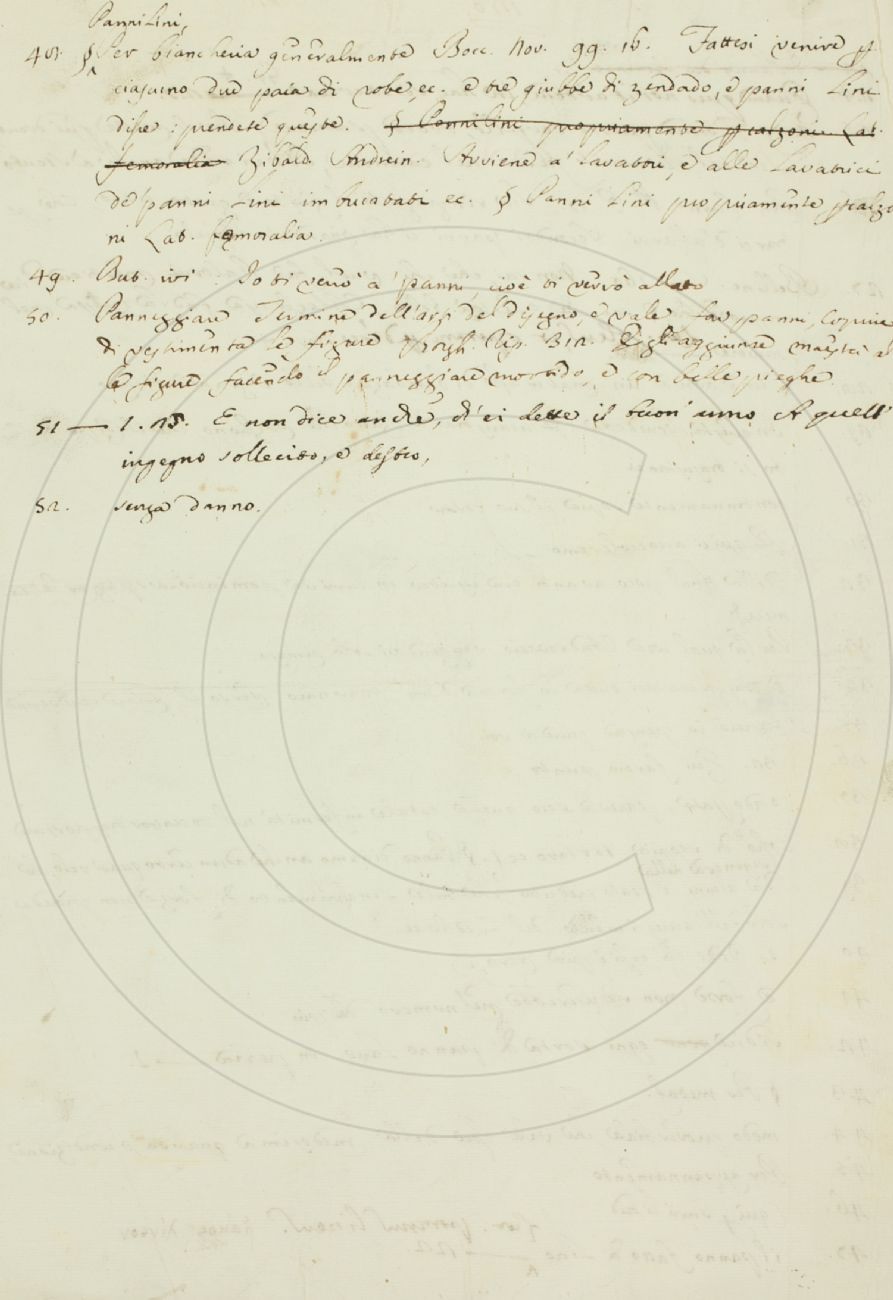 Panni Lini,
48. § Per biancheria generalmente Bocc. Nov. 99. 16. Fattesi venire p
ciascuno due paia di robe, ec. e tre giubbe di zendado, e panni lini
disse: prendete queste. § Panni lini propriamente p calzoni. Lat.
femoralia Zibald. Andrein. Avviene a' lavatori, e alle lavatrici
de' panni Lini imbucatati ec. § Panni Lini propriamente p calzo
ni Lat. femoralia.
49. But. ivi. Io ti verrò a' panni, cioè ti verrò allato
50. Panneggiare Termine dell'arte del disegno, e vale far panni, coprire
di vestimenta le figure Borgh. Rip. 312. Egli aggiunse maestà a
le figure, facendo il panneggiare morbido, e con belle pieghe.
51 — 1. 15. E non dice anche, ch'ei dette il buon' anno A quell'
ingegno sollecito, e destro,
52. senza danno.